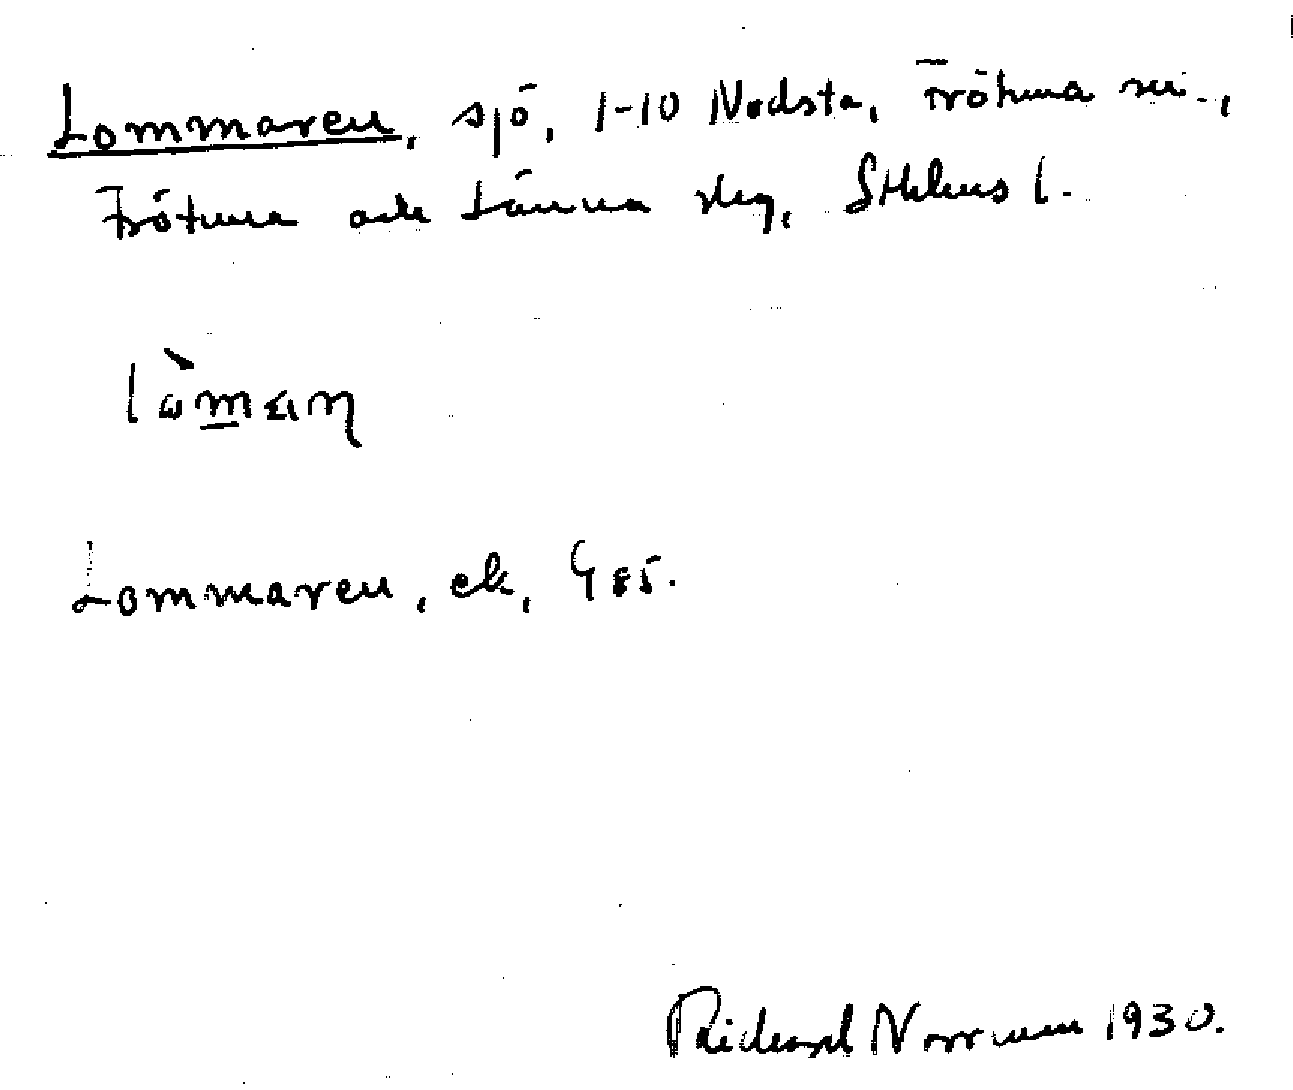 Lommaren, sjö, 1-10 Nodsta, Frötuna sn.,
Frötuna och Länna skg, Sthlms l.
Lommaren, ek, G 85.
Rickard Norrman 1930.